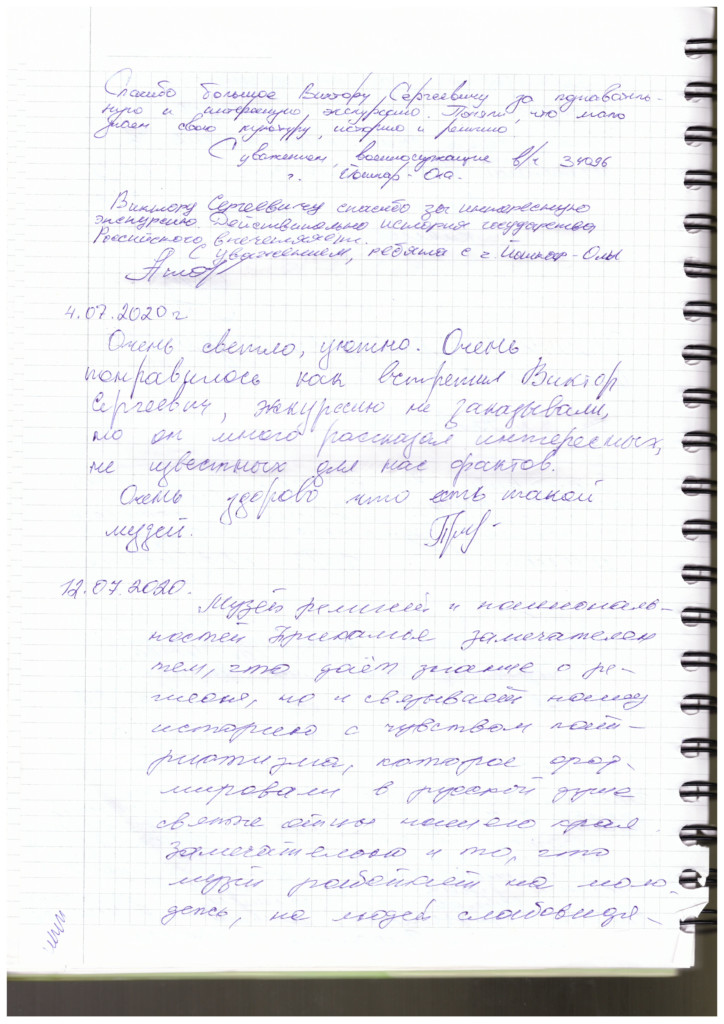 Спасибо большое Виктору Сергеевичу за познаватель-
ную и интересную экскурсию. Поняли, что мало
знаем свою культуру, историю и религию
С уважением, военнослужащие в/ч 34096
г. Йошкар-Ола.
Виктору Сергеевичу спасибо за интересную
экскурсию Действительно история государства
Российского впечатляет.
С уважением, ребята с г Йошкар-Олы
4.07.2020 г
Очень светло, уютно. Очень
понравилось как встретил Виктор
Сергеевич, экскурсию не заказывали,
но он много рассказал интересных,
не известных для нас фактов.
Очень здорово что есть такой
музей.
12.07.2020.
Музей религий и национально-
стей Прикамья замечателен
тем, что даёт знание о ре-
лигиях, но и связывает нашу
историю с чувством пат-
риотизма, которое фор-
мировали в русской душе
святые отцы нашего края.
Замечательно и то, что
музей работает на моло-
дежь, на людей слабовидя-